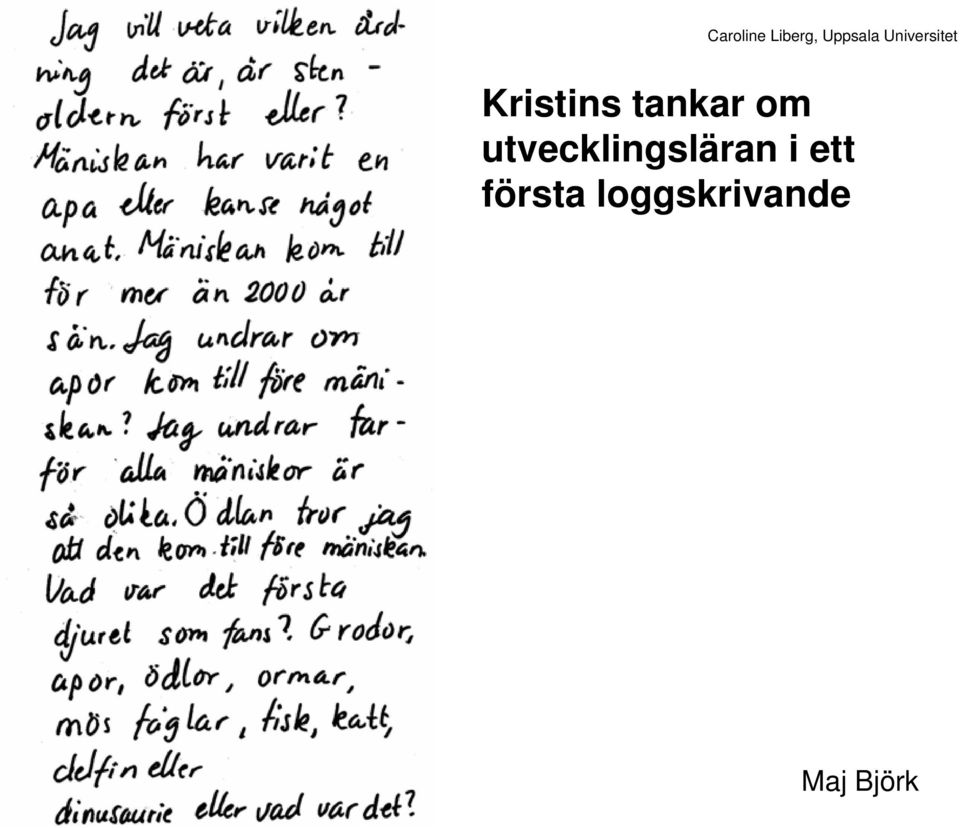 Jag vill veta vilken ård-
ning det är, är sten -
oldern först eller?
Mäniskan har varit en
apa eller kanse något
anat. Mäniskan kom till
för mer än 2000 år
sän. Jag undrar om
apor kom till före mäni-
skan? Jag undrar far-
för alla människor är
så olika. Ödlan tror jag
att den kom till före mäniskan.
Vad var det första
djuret som fans? Grodor,
apor, ödlor, ormar,
mös fåglar, fisk, katt,
delfin eller
dinusaurie eller vad var det?
Caroline Liberg, Uppsala Universitet
Kristins tankar om
utvecklingsläran i ett
första loggskrivande
Maj Björk